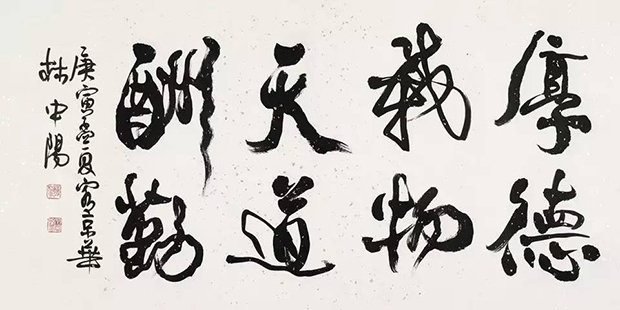 厚德
载物
天道
酬勤
庚寅孟夏客京華
林中陽